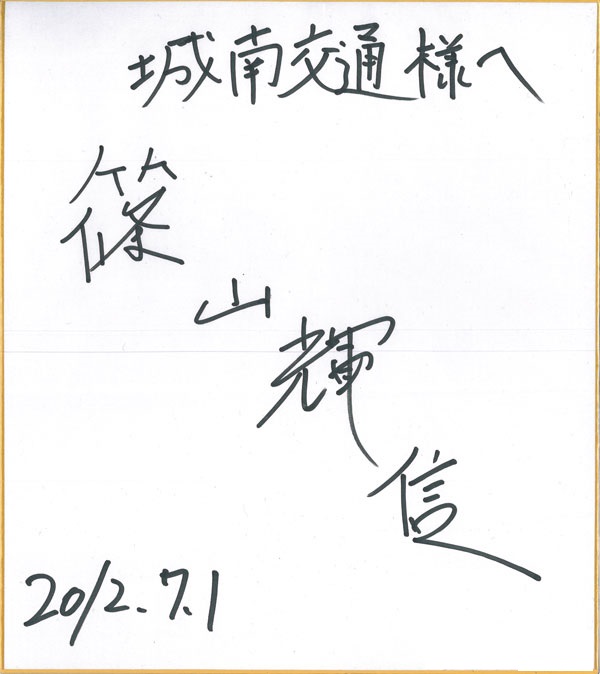 城南交通様へ
篠山輝信
2012.7.1